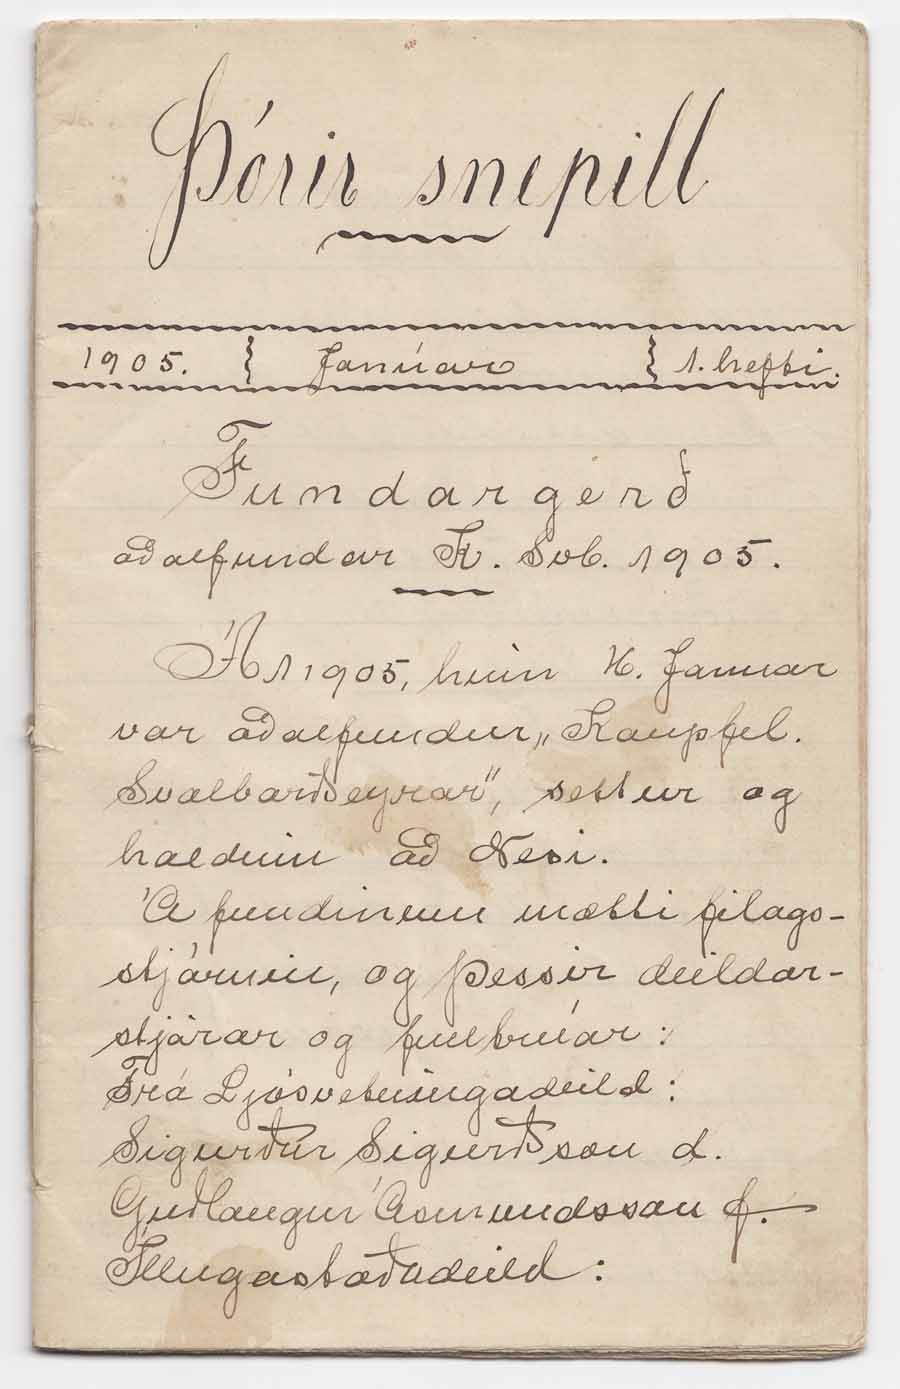 Þórir snepill
1905. } Janúar } 1. hefti.
Fundargerð
aðalfundar K. Svb. 1905.
Ár 1905, hinn 4. Januar
var aðalfundur „Kaupfel.
Svalbarðseyrar", settur og
haldinn að Nesi.
Á fundinum mætti félags-
stjórnin, og þessir deildar-
stjórar og fulltrúar:
Frá Ljósvetningadeild:
Sigurður Sigurðsson d.
Guðlaugur Ásmundsson f.
Illugastaðadeild: